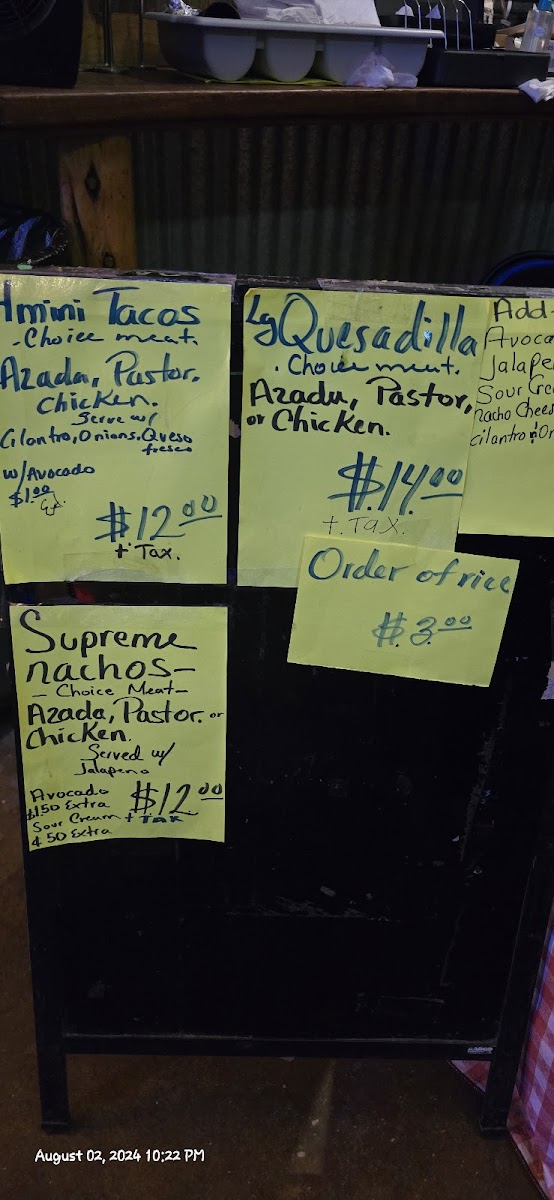 4 mini Tacos
- Choice meat.
Azada, Pastor.
Chicken.
Serve w/
Cilantro, Onions. Queso
fresco
w/Avocado
$1.00
$12.00
+ Tax.
Lg Quesadilla
. Choice meat.
Azada, Pastor,
or Chicken.
$14.00
+. Tax.
Add-
Avoca
Jalape
Sour Cre
nacho Chees
cilantro Or
Order of rice
$3.00
Supreme
nachos-
- Choice Meat-
Azada, Pastor. or
Chicken.
Served w/
Jalapeno
Avocado
$1.50 Extra
$12.00
Sour Cream + TAX
50 Extra
August 02, 2024 10:22 PM